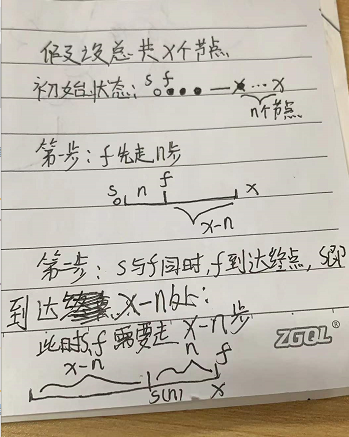 假设总共X个节点
初始状态: s f — x … x
n个节点
第一步: f先走n步
s n f x
x-n
第二步: s与f同时, f到达终点, s即
到达 x-n处:
此时s,f需要走 x-n步
ZGQL
x-n n f
s(n) x